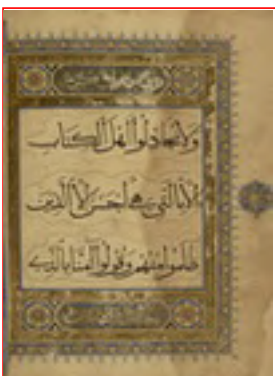 ولا تجادلوا أهل الكتاب
إلا بالتي هي أحسن إلا الذين
ظلموا منهم وقولوا آمنا بالذي